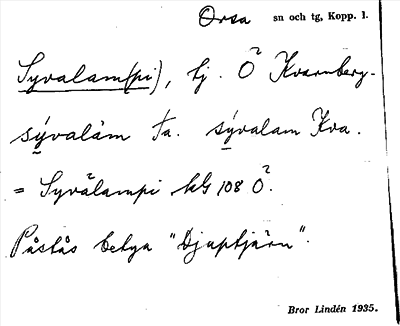 Orsa sn och tg, Kopp. l.
Syvalam(pi), tj. Ö Kvarnberg-
sy̱valàm fa. sy̱valam Kva.
= Syvälampi kG 108 Ö.
Påstås betya "Djuptjärn".
Bror Lindén 1935.